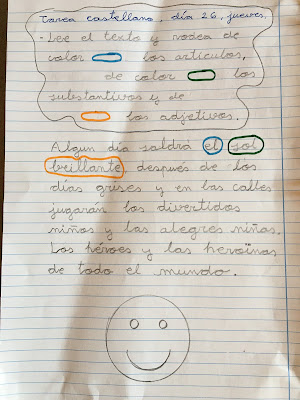 Tarea castellano, día 26, jueves.
- Lee el texto y rodea de
color los artículos,
de color los
sustantivos y de
los adjetivos.
Algun día saldrá el sol
brillante, después de los
días grises y en las calles
jugarán los divertidos
niños y las alegres niñas.
Los héroes y las heroínas
de todo el mundo.